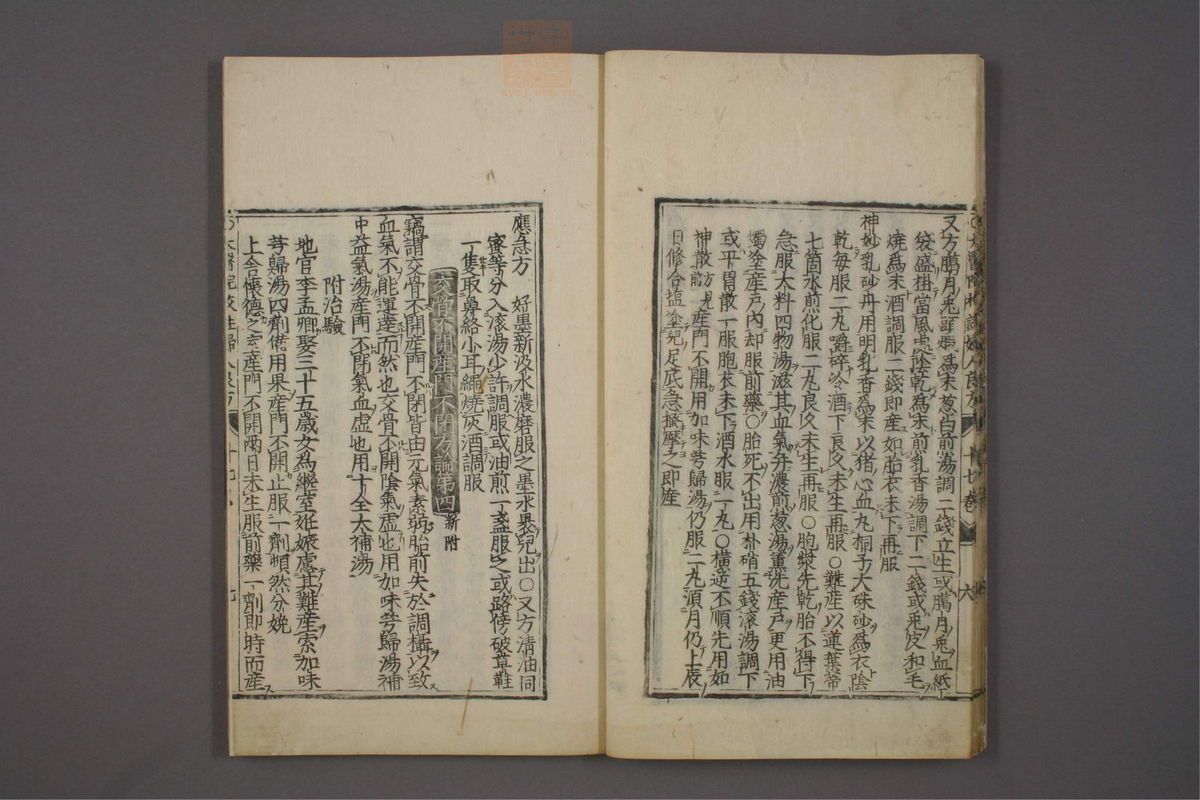 又方臘月兎頭腦爲末葱白煎湯調一錢立生或臘月兎血紙
袋盛掛當風處陰乾爲末煎乳香湯調下二錢或兎皮和毛
燒爲末酒調服二錢即産如胎衣未下再服
神妙乳砂丹用明乳香爲末以猪心血丸梧子大硃砂爲衣陰
乾每服二丸嚼碎冷酒下良久未生再服〇難産以蓮葉蒂
七箇水煎化服二丸良久未生再服〇胞漿先乾胎不得下
急服大料四物湯滋其血氣并濃煎葱湯熏洗産戸更用油
燭塗産戸內却服前藥〇胎死不出用朴硝五錢滚湯調下
或平胃散一服胞衣未下酒水服二丸〇橫逆不順先用如
神散方見前産門不開用加味芎歸湯仍服二丸須月仍上辰
日修合塩塗兒足底急搔摩之即産
應急方 好墨新汲水濃磨服之墨水裹兒出〇又方清油同
蜜等分入滚湯少許調服或油煎一盞服之或路傍破草鞋
一隻取鼻絡小耳繩燒灰酒調服
交骨不開産門不閉方論第四 新附
竊謂交骨不開産門不閉皆由元氣素弱胎前失於調攝以致
血氣不能運達而然也交骨不開陰氣虛也用加味芎歸湯補
中益氣湯産門不閉氣血虛也用十全大補湯
附治驗
地官李孟卿娶三十五歲女爲繼室姙娠慮其難産索加味
芎歸湯四劑備用果産門不開止服一劑頓然分娩
上舍懷德之室産門不開兩日未生服前藥一劑即時而産